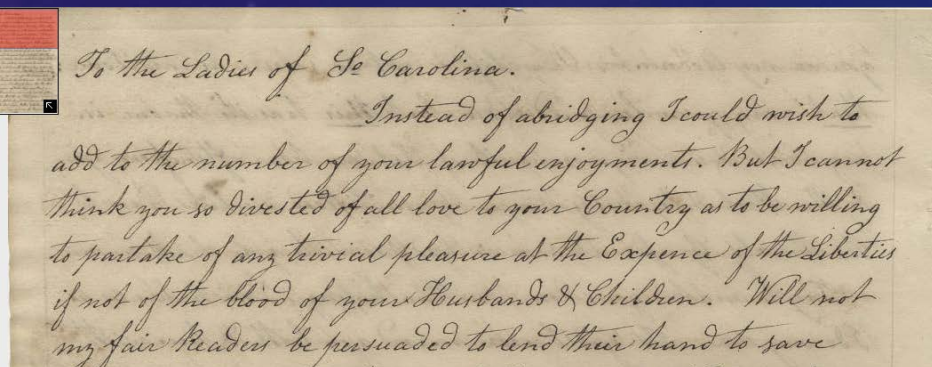 To the Ladies of So Carolina.
Instead of abridging I could wish to
add to the number of your lawful enjoyments. But I cannot
think you so divested of all love to your Country as to be willing
to partake of any trivial pleasure at the Expence of the Liberties
if not of the blood of your Husbands & Children. Will not
my fair Readers be persuaded to lend their hand to save